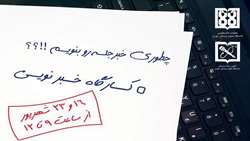 چطوری خبر جلسه رو بنویسم !!؟؟
کارگاه خبر نویسی
۱۶ و ۲۳ شهریور
از ساعت ۹ تا ۱۲